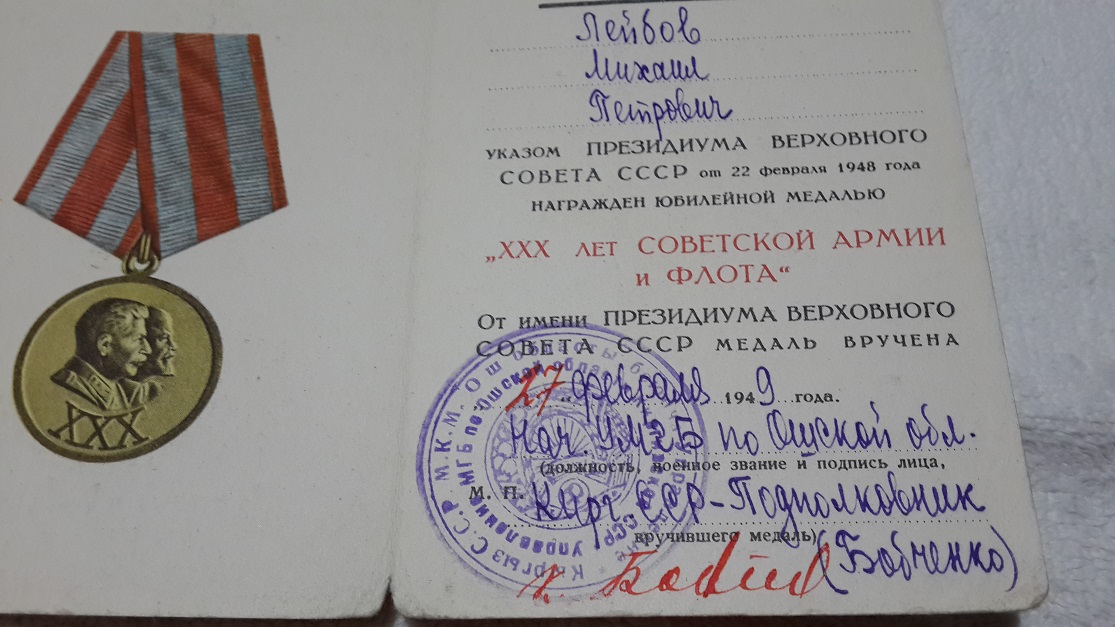 XXX
Лейбов
Михаил
Петрович
УКАЗОМ ПРЕЗИДИУМА ВЕРХОВНОГО
СОВЕТА СССР от 22 февраля 1948 года
НАГРАЖДЕН ЮБИЛЕЙНОЙ МЕДАЛЬЮ
„XXX ЛЕТ СОВЕТСКОЙ АРМИИ
И ФЛОТА“
ОТ ИМЕНИ ПРЕЗИДИУМА ВЕРХОВНОГО
СОВЕТА СССР МЕДАЛЬ ВРУЧЕНА
27 февраля 1949 года.
Нач. УМГБ по Ошской обл.
(должность, военное звание и подпись лица,
М. П. Кирг ССР-Подполковник
вручившего медаль)
(Бобченко)
Кыргыз С.С.Р М.К.М. Ош областы
Управление МГБ по Ошской области ССР